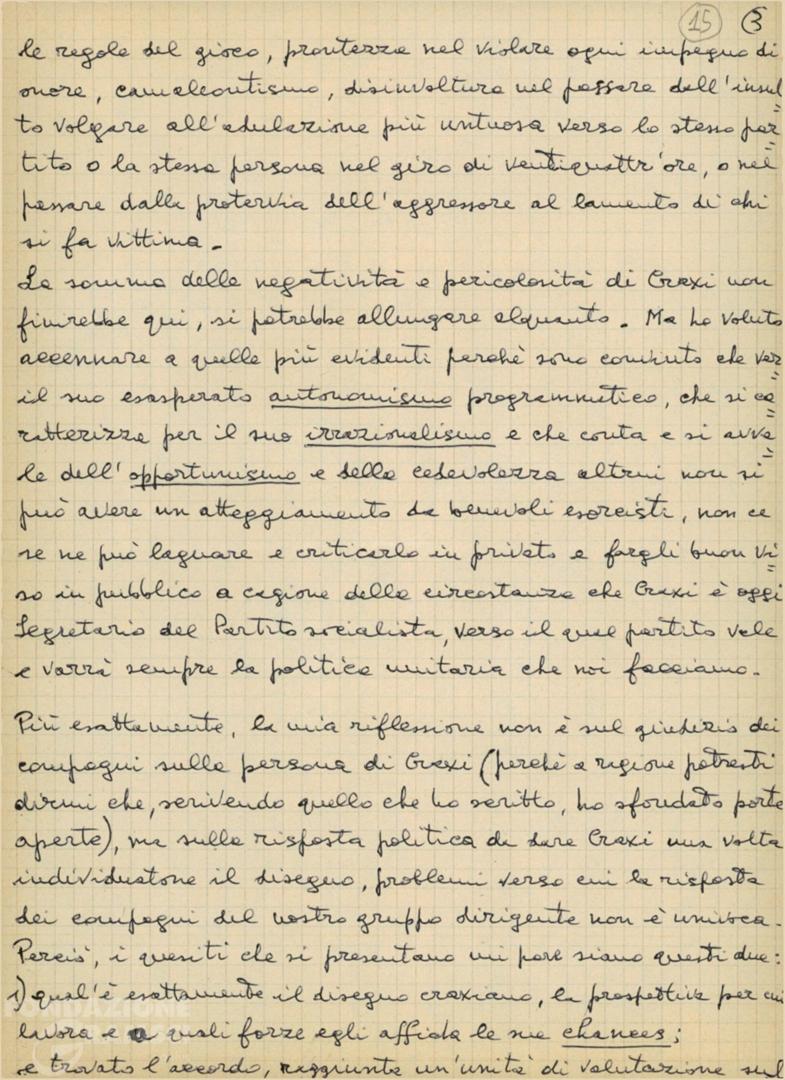 15 3
le regole del gioco, prontezza nel violare ogni impegno di
onore, camaleontismo, disinvoltura nel passare dall'insul=
to volgare all'adulazione più untuosa verso lo stesso par=
tito o la stessa persona nel giro di ventiquattr'ore, o nel
passare dalla protervia dell'aggressore al lamento di chi
si fa vittima.
La somma delle negatività e pericolosità di Craxi non
finirebbe qui, si potrebbe allungare alquanto. Ma ho voluto
accennare a quelle più evidenti perchè sono convinto che ver=
il suo esasperato autonomismo programmatico, che si ca=
ratterizza per il suo irrazionalismo e che conta e si avva=
le dell'opportunismo e della cedevolezza altrui non si
può avere un atteggiamento da benevoli esorcisti, non ce
se ne può lagnare e criticarlo in privato e fargli buon vi=
so in pubblico a cagione della circostanza che Craxi è oggi
Segretario del Partito socialista, verso il qual partito vale
e varrà sempre la politica unitaria che noi facciamo.
Più esattamente, la mia riflessione non è sul giudizio dei
compagni sulla persona di Craxi (perchè a ragione potresti
dirmi che, scrivendo quello che ho scritto, ho sfondato porte
aperte), ma sulla risposta politica da dare Craxi una volta
individuatone il disegno, problemi verso cui la risposta
dei compagni del nostro gruppo dirigente non è univoca.
Perciò, i quesiti che si presentano mi pare siano questi due:
1) qual'è esattamente il disegno craxiano, la prospettiva per cui
lavora e a quali forze egli affida le sue chances;
e trovato l'accordo, raggiunta un'unità di valutazione sul
FONDAZIONE